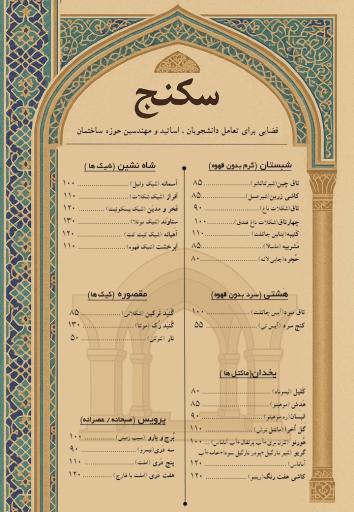 سکنج
فضایی برای تعامل دانشجویان ، اساتید و مهندسین حوزه ساختمان
شبستان (گرم بدون قهوه)
تاق چین (شیر تاتائو) ۸۵
کاشی زرین (شیر عسل) ۸۵
تاق (شکلات داغ) ۹۰
چهارتاق (شکلات داغ فندق) ۱۰۰
کتیبه (آیس چاکلت) ۱۱۰
مشربیه (ماسالا) ۸۵
حجره (چایی لاته) ۸۰
هشتی (سرد بدون قهوه)
تاق سرد (آیس چاکلت) ۱۰۰
کنج سرد (آیس تی) ۵۵
یخدان (ماکتل ها)
کلیل (لیموناد) ۸۰
هدش (موهیتو) ۸۵
لیسان (رد موهیتو) ۹۰
گل آخرا (ماکتل ترش) ۱۱۰
هورنو ۱۰۰
گریو
آناناس) ۱۲۰
کاشی هفت رنگ (رینبو) ۱۲۰
شاه نشین (شیک ها)
آسمانه (شیک وانیل) ۱۰۰
افراز (شیک شکلات) ۱۱۰
فخر و مدین (شیک بیسکوئیت) ۱۲۰
ستاوند (شیک نوتلا) ۱۳۰
آهیانه (شیک کیت کت) ۱۲۰
ابرخشت (شیک قهوه) ۱۱۰
مقصوره (کیک ها)
گنبد ترکین (شکلاتی) ۸۵
گنبد رک (موکا) ۱۳۰
نار (کوکی) ۵۰
پرویس (صبحانه / عصرانه)
برج و بارو (سیب زمینی) ۱۰۰
سه دری (نیمرو) ۹۰
پنج دری (املت) ۱۱۰
هفت دری (املت با قارچ) ۱۲۰